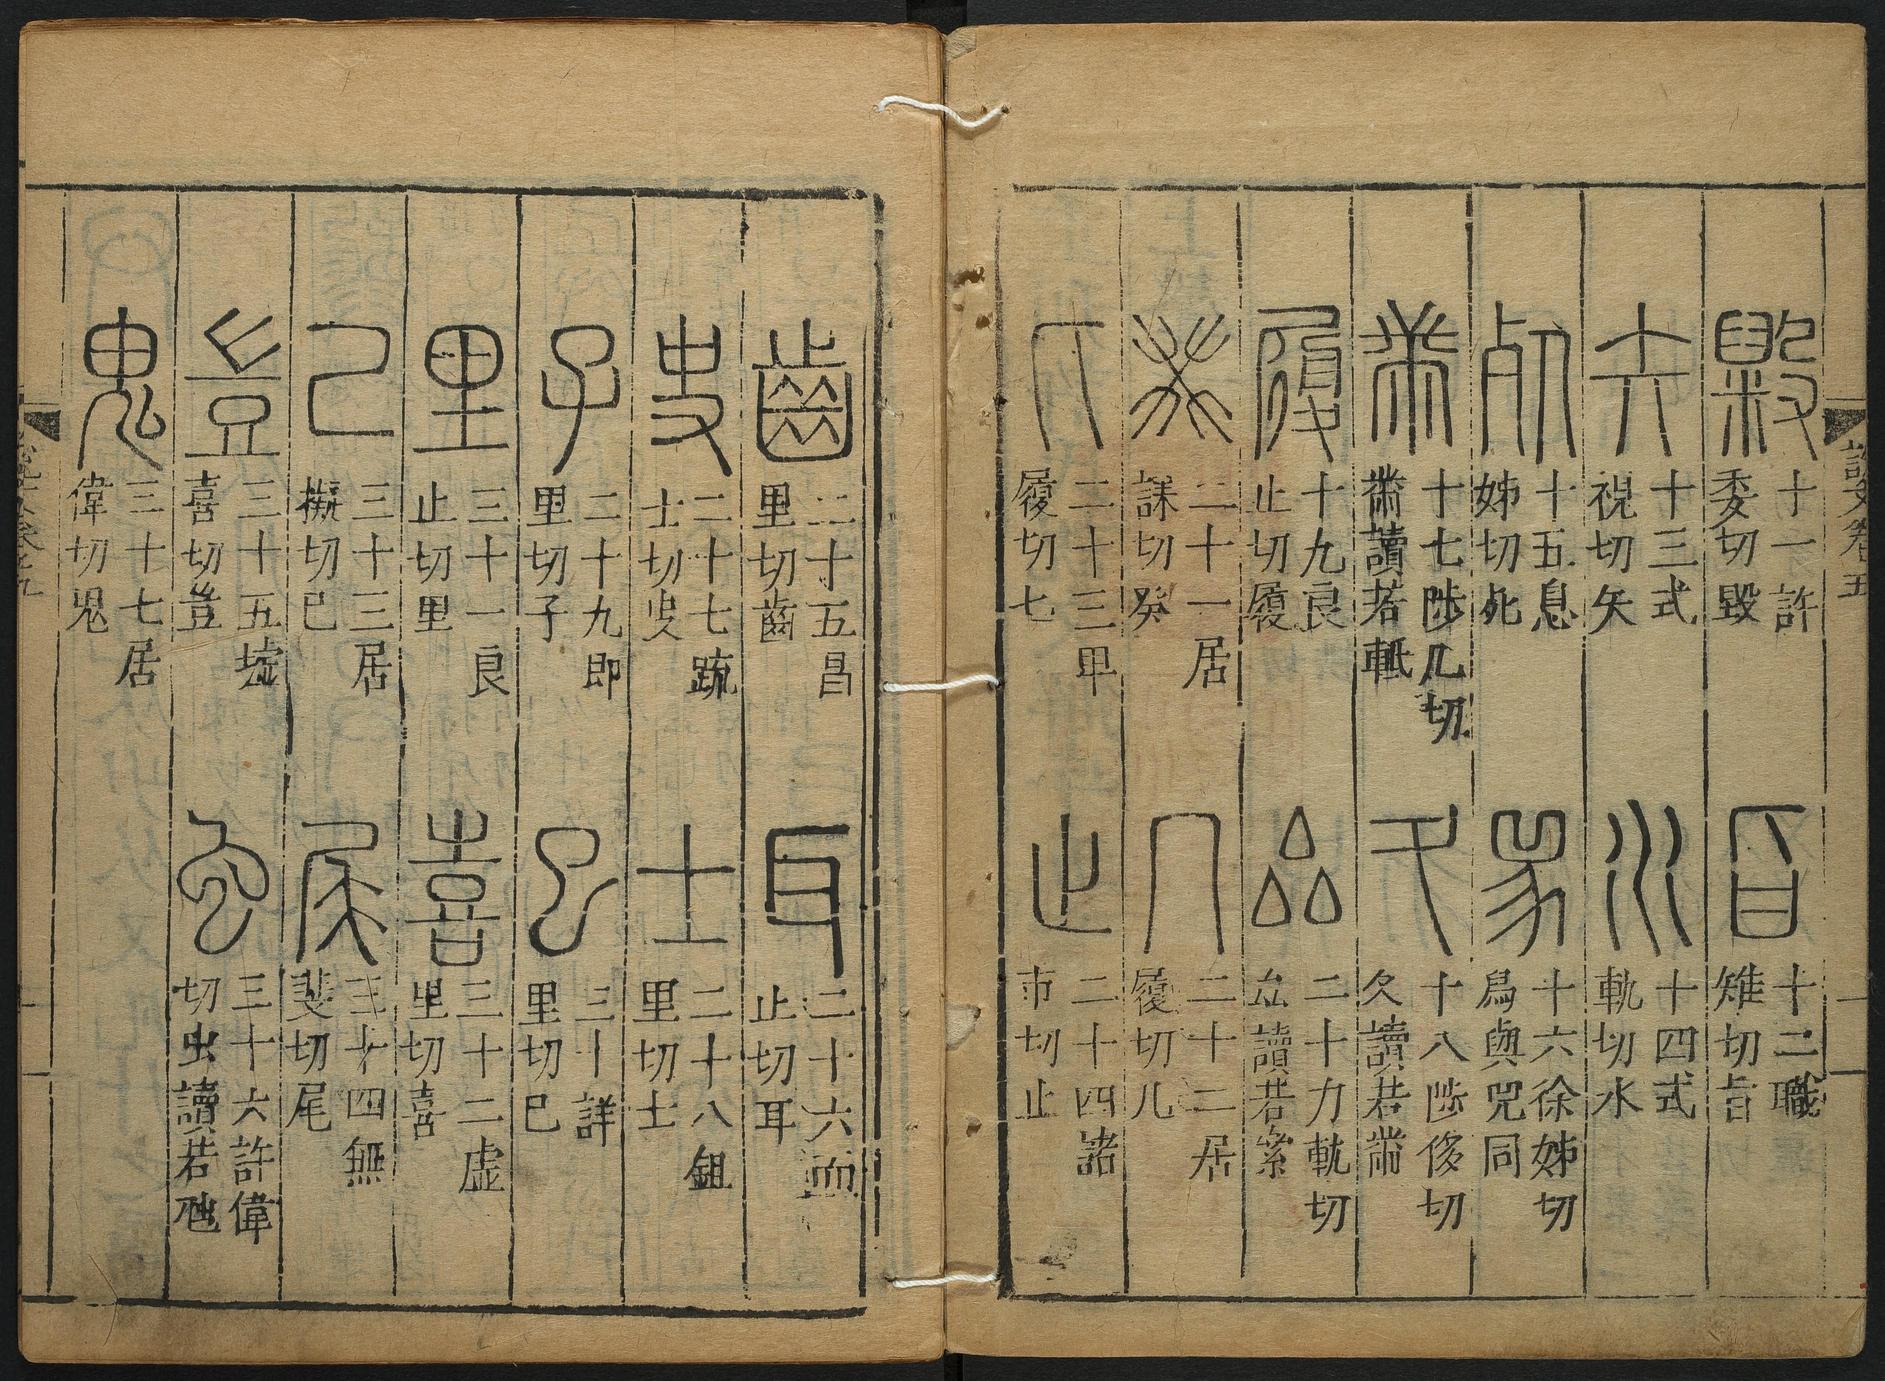 說文卷五
毀
十一許
委切毀
旨
十二職
雉切旨
矢
十三式
視切矢
水
十四式
軌切水
死
十五息
姊切死
十六徐姊切
舄與兕同
黹
十七陟几切
黹讀若軧
夂
十八陟侈切
夂讀若黹
履
十九良
止切履
厽
二十力軌切
厽讀若絫
癸
二十一居
誄切癸
几
二十二居
履切几
匕
二十三甲
履切七
止
二十四諸
市切止
齒
二十五昌
里切齒
耳
二十六而
止切耳
史
二十七疏
士切史
士
二十八鉏
里切士
子
二十九即
里切子
巳
三十詳
里切巳
里
三十一良
止切里
喜
三十二虛
里切喜
己
三十三居
擬切己
尾
三十四無
斐切尾
豈
三十五墟
喜切豈
虫
三十六許偉
切虫讀若虺
鬼
三十七居
偉切鬼